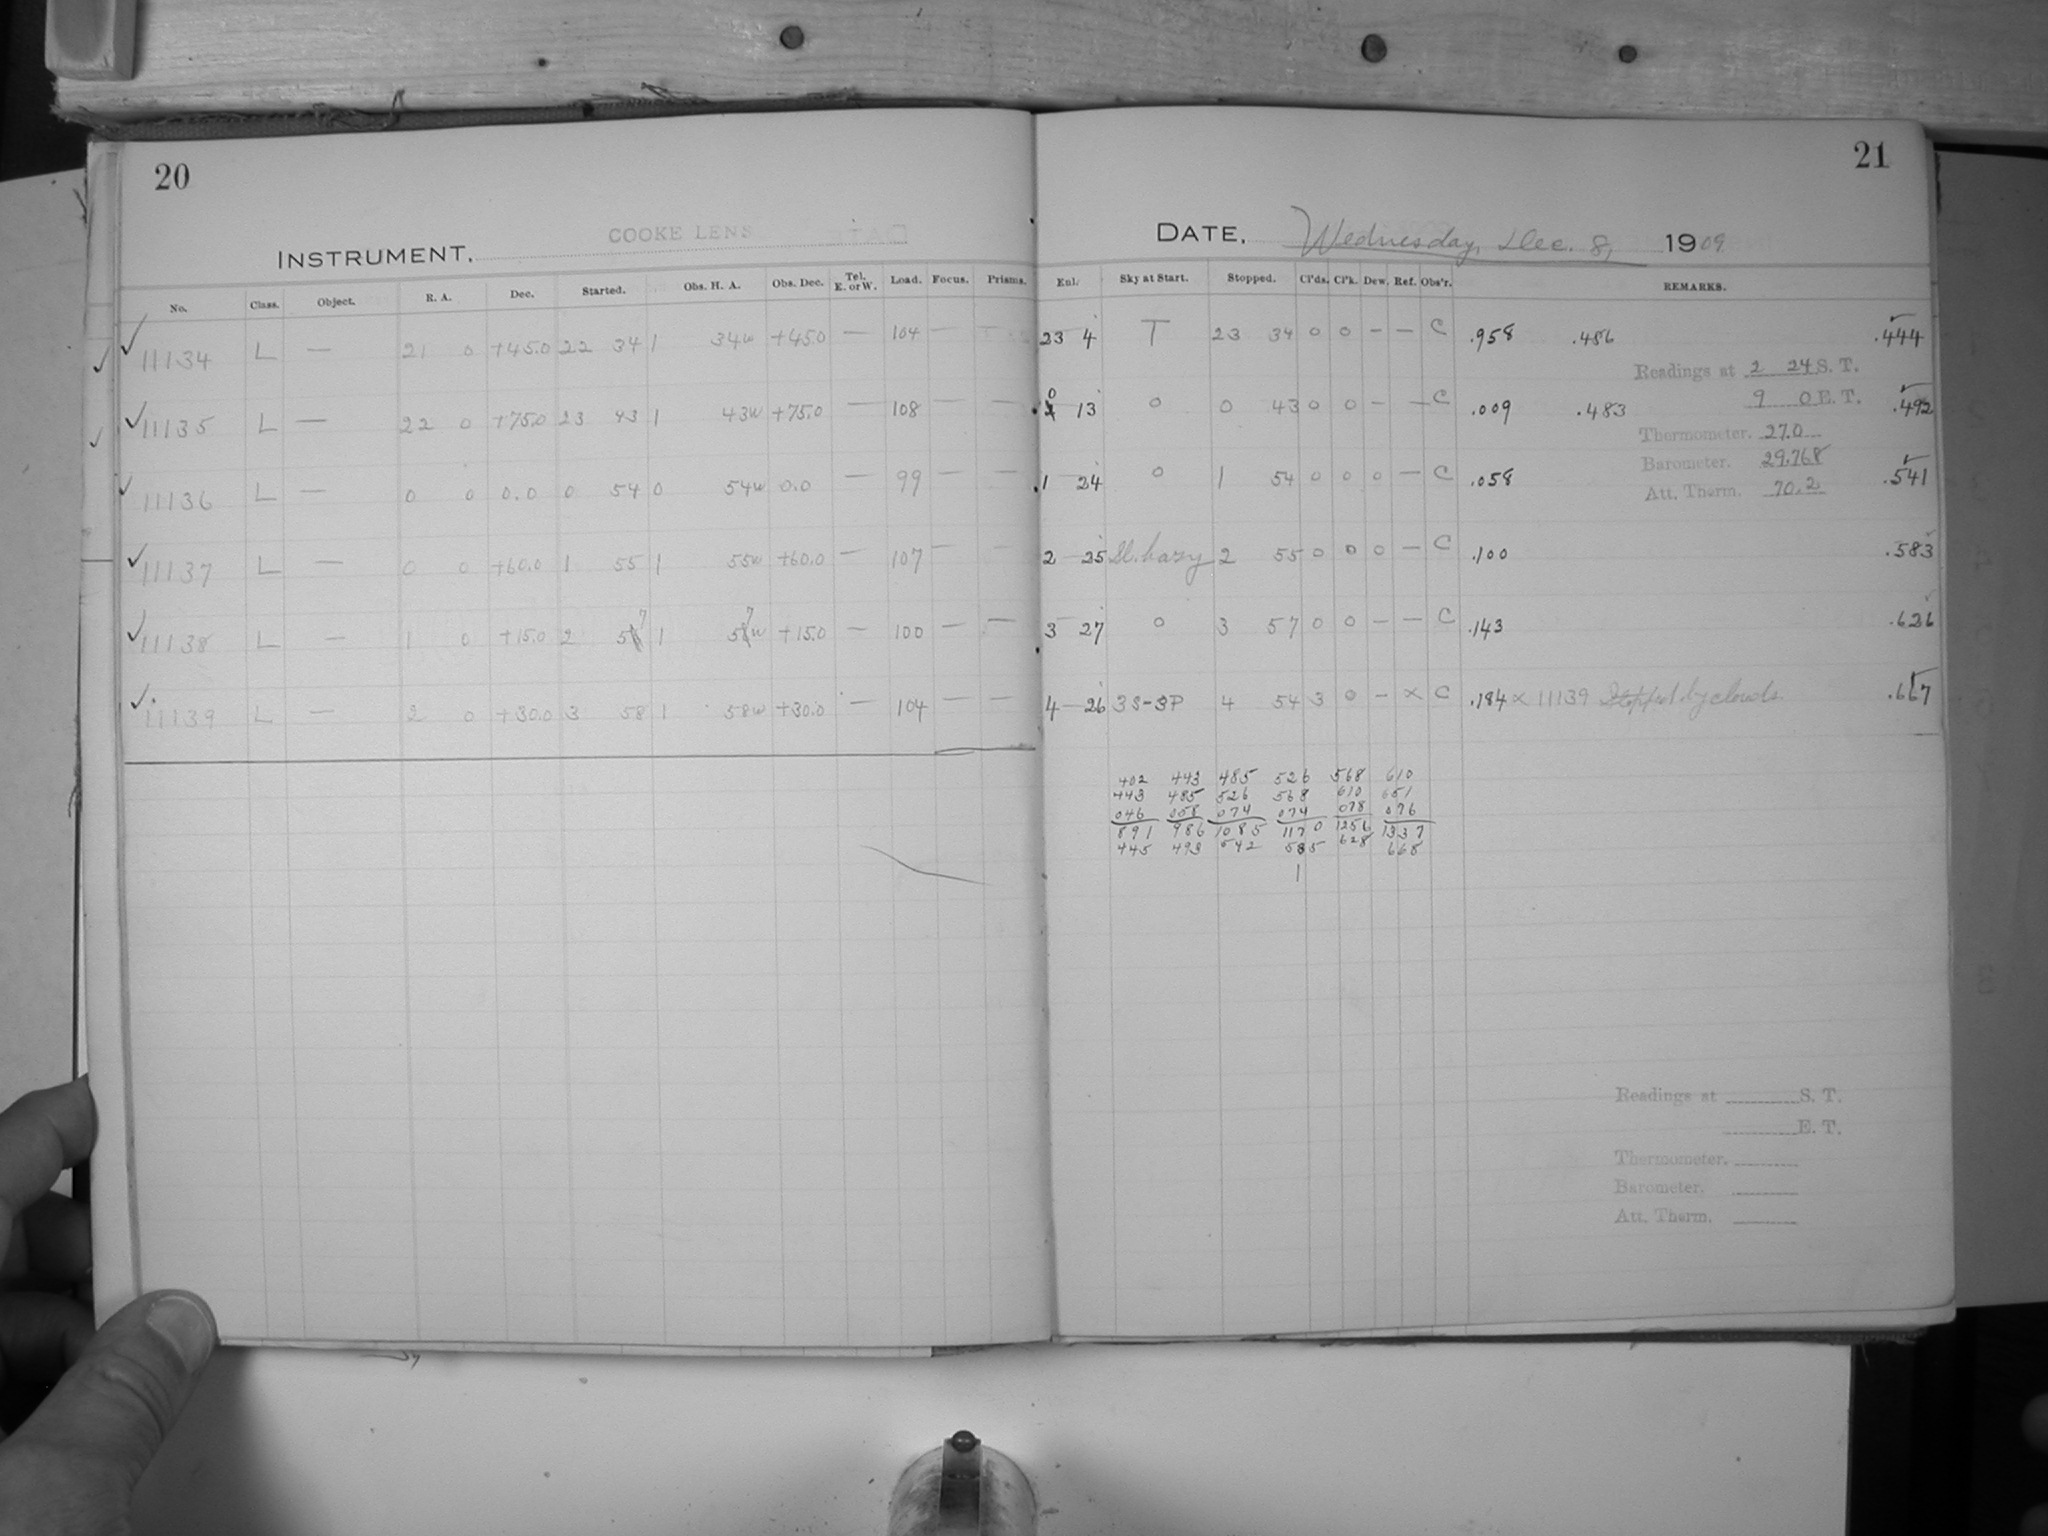 20
COOKE LENS
INSTRUMENT.
No. Class. Object. R. A. Dec. Started. Obs. H. A. Obs. Dec. Tel. E. or W. Load. Focus. Prisms.
11134 L — 21 0 +45.0 22 34 1 34w +45.0 — 104 —
11135 L — 22 0 +75.0 23 43 1 43w +75.0 — 108 — —
11136 L — 0 0 0.0 0 54 0 54w 0.0 — 99 — —
11137 L — 0 0 +60.0 1 55 1 55w +60.0 — 107 — —
11138 L — 1 0 +15.0 2 57 1 57w +15.0 — 100 — —
11139 L — 2 0 +30.0 3 58 1 58w +30.0 — 104 — —
21
DATE, Wednesday, Dec. 8, 1909
Enl. Sky at Start. Stopped. Cl'ds. Cl'k. Dew. Ref. Obs'r. REMARKS.
23 4 T 23 34 0 0 — — C .958 .486 .444
Readings at 2 24 S. T.
0 13 0 0 43 0 0 — — C .009 .483 9 0 E. T. .492
Thermometer. 27.0
Barometer. 29.768
1 24 0 1 54 0 0 0 — C .058 .541
Att. Therm. 70.2
2 25 Sl. hazy 2 55 0 0 0 — C .100 .583
3 27 0 3 57 0 0 — — C .143 .626
4 26 3S-3P 4 54 3 0 — × C .184 × 11139 Stopped by clouds .667
402 443 485 526 568 610
443 485 526 568 610 651
046 058 074 074 078 076
891 986 1085 1170 1256 1337
445 493 542 585 628 668
Readings at S. T.
E. T.
Thermometer.
Barometer.
Att. Therm.